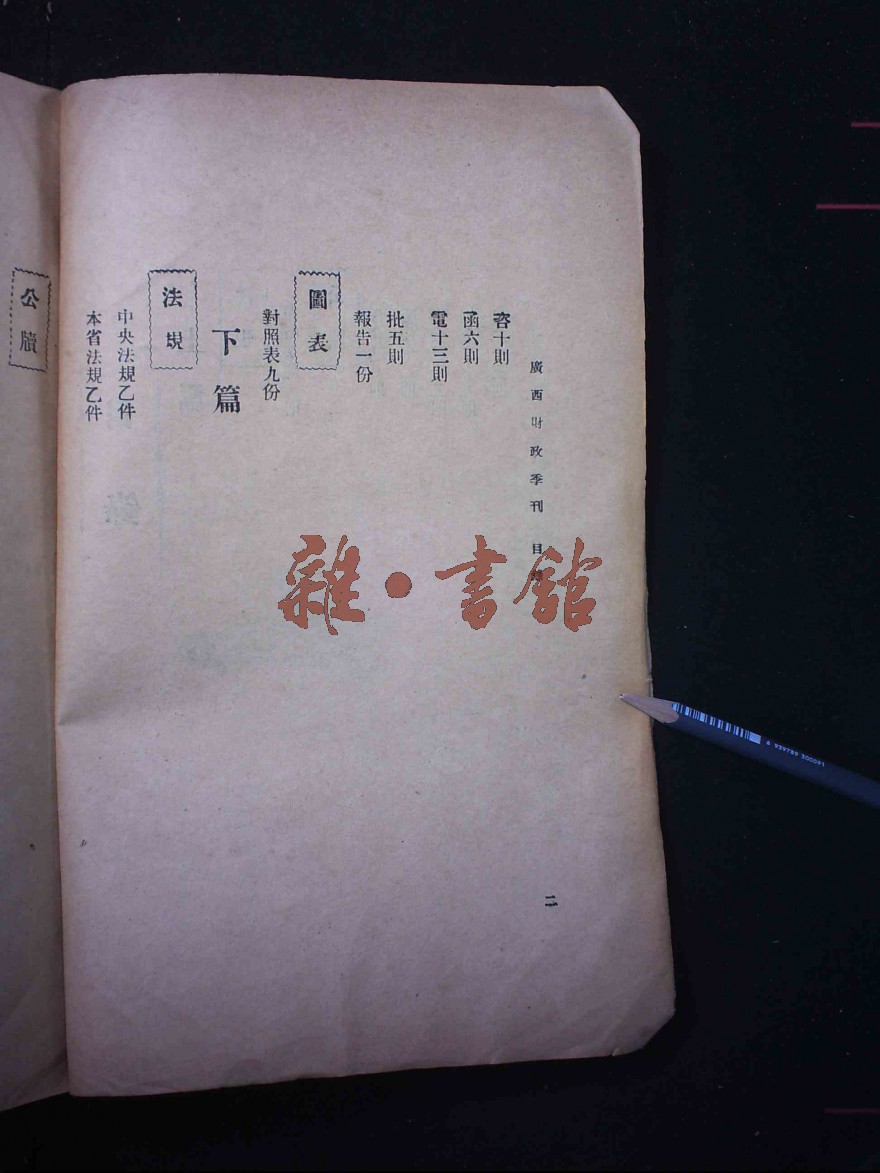 廣西財政季刊 目
二
咨十則
函六則
電十三則
批五則
報告一份
圖表
對照表九份
下篇
法規
中央法規乙件
本省法規乙件
公牘
雜·書館
6 939789 300091